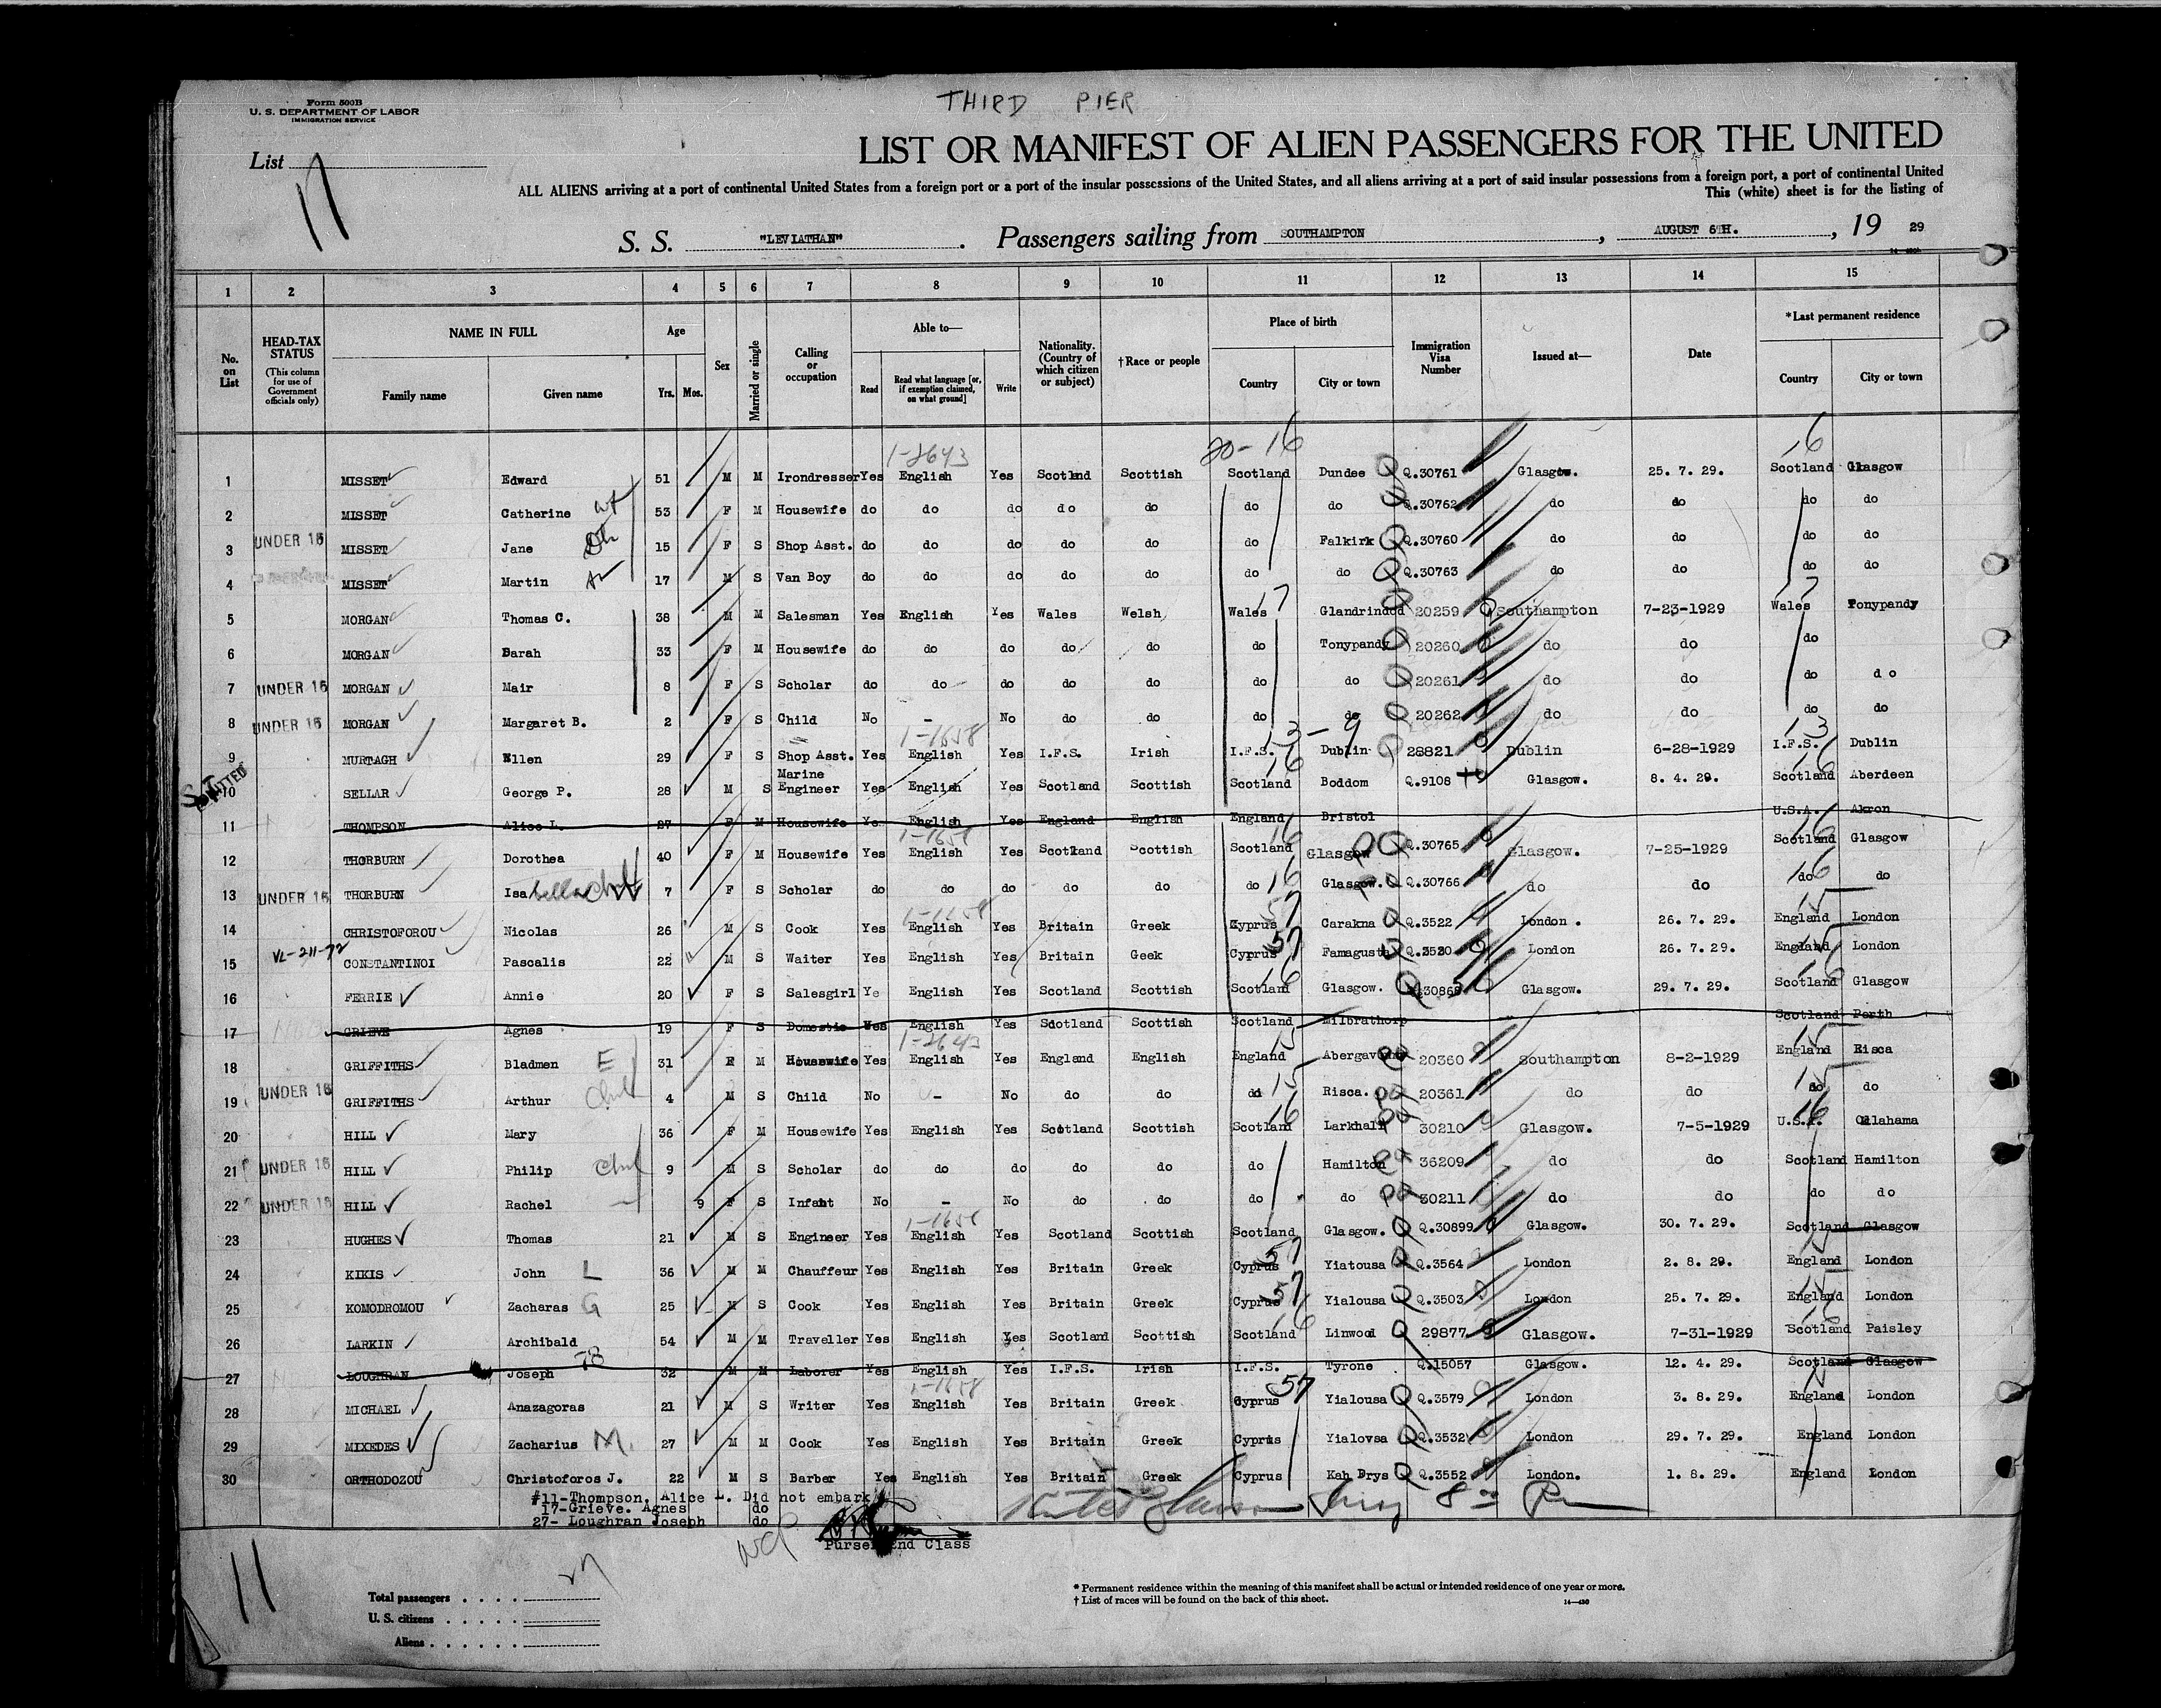 THIRD PIER
Form 500B
U. S. DEPARTMENT OF LABOR
IMMIGRATION SERVICE
List 11
LIST OR MANIFEST OF ALIEN PASSENGERS FOR THE UNITED
ALL ALIENS arriving at a port of continental United States from a foreign port or a port of the insular possessions of the United States, and all aliens arriving at a port of said insular possessions from a foreign port, a port of continental United
This (white) sheet is for the listing of
S. S. "LEVIATHAN". Passengers sailing from SOUTHAMPTON, AUGUST 6TH., 19 29
1 2 3 4 5 6 7 8 9 10 11 12 13 14 15
No. on List
HEAD-TAX STATUS (This column for use of Government officials only)
NAME IN FULL Family name Given name
Age Yrs. Mos.
Sex
Married or single
Calling or occupation
Able to— Read Read what language [or, if exemption claimed, on what ground] Write
Nationality. (Country of which citizen or subject)
†Race or people
Place of birth Country City or town
Immigration Visa Number
Issued at—
Date
*Last permanent residence Country City or town
1-2643 20-16 16
1 MISSET Edward 51 M M Irondresser Yes English Yes Scotland Scottish Scotland Dundee Q.30761 Glasgow. 25. 7. 29. Scotland Glasgow
2 MISSET Catherine 53 F M Housewife do do do do do do do Q.30762 do do do do
3 UNDER 16 MISSET Jane 15 F S Shop Asst. do do do do do do Falkirk Q.30760 do do do do
4 MISSET Martin 17 M S Van Boy do do do do do do do Q.30763 do do do do
5 MORGAN Thomas C. 38 M M Salesman Yes English Yes Wales Welsh Wales Glandrindod 20259 Southampton 7-23-1929 Wales Tonypandy
6 MORGAN Sarah 33 F M Housewife do do do do do do Tonypandy 20260 do do do
7 UNDER 16 MORGAN Mair 8 F S Scholar do do do do do do do 20261 do do do do
8 UNDER 16 MORGAN Margaret B. 2 F S Child No - No do do do do 20262 do do do do
1-1658
9 MURTAGH Ellen 29 F S Shop Asst. Yes English Yes I.F.S. Irish I.F.S. Dublin 28821 Dublin 6-28-1929 I.F.S. Dublin
10 SELLAR George P. 28 M S Marine Engineer Yes English Yes Scotland Scottish Scotland Boddom Q.9108 Glasgow. 8. 4. 29. Scotland Aberdeen
11 THOMPSON Alice L. 27 F M Housewife Yes English Yes England English England Bristol U.S.A. Akron
1-1658
12 THORBURN Dorothea 40 F M Housewife Yes English Yes Scotland Scottish Scotland Glasgow Q.30765 Glasgow. 7-25-1929 Scotland Glasgow
13 UNDER 16 THORBURN Isabella 7 F S Scholar do do do do do do Glasgow. Q.30766 do do do do
14 CHRISTOFOROU Nicolas 26 M S Cook Yes English Yes Britain Greek Cyprus Carakna Q.3522 London. 26. 7. 29. England London
15 CONSTANTINOI Pascalis 22 M S Waiter Yes English Yes Britain Geek Cyprus Famagusta Q.3520 London 26. 7. 29. England London
16 FERRIE Annie 20 F S Salesgirl Ye English Yes Scotland Scottish Scotland Glasgow. Glasgow. 29. 7. 29. Scotland Glasgow
17 GRIEVE Agnes 19 F S Domestic Yes English Yes Scotland Scottish Scotland Milbrathorp Scotland Perth
1-2643
18 GRIFFITHS Bladmen 31 F M Housewife Yes English Yes England English England 20360 Southampton 8-2-1929 England Risca
19 UNDER 16 GRIFFITHS Arthur 4 M S Child No - No do do do Risca. 20361 do do do do
20 HILL Mary 36 F M Housewife Yes English Yes Scotland Scottish Scotland Larkhall 30210 Glasgow. 7-5-1929 U.S.A. Oklahama
21 UNDER 16 HILL Philip 9 M S Scholar do do do do do do Hamilton 36209 do do Scotland Hamilton
22 UNDER 16 HILL Rachel 9 F S Infant No - No do do do do 30211 do do do do
1-1658
23 HUGHES Thomas 21 M S Engineer Yes English Yes Scotland Scottish Scotland Glasgow. Q.30899 Glasgow. 30. 7. 29. Scotland Glasgow
24 KIKIS John 36 M M Chauffeur Yes English Yes Britain Greek Cyprus Yiatousa Q.3564 London 2. 8. 29. England London
25 KOMODROMOU Zacharas 25 M S Cook Yes English Yes Britain Greek Cyprus Yialousa Q.3503 London 25. 7. 29. England London
26 LARKIN Archibald 54 M M Traveller Yes English Yes Scotland Scottish Scotland Linwood 29877 Glasgow. 7-31-1929 Scotland Paisley
27 LOUGHRAN Joseph 32 M M Laborer Yes English Yes I.F.S. Irish I.F.S. Tyrone Q.15057 Glasgow. 12. 4. 29. Scotland Glasgow
1-1658
28 MICHAEL Anazagoras 21 M S Writer Yes English Yes Britain Greek Cyprus Yialousa Q.3579 London 3. 8. 29. England London
29 MIXEDES Zacharius M. 27 M M Cook Yes English Yes Britain Greek Cyprus Yialovsa Q.3532 London 29. 7. 29. England London
30 ORTHODOZOU Christoforos J. 22 M S Barber Yes English Yes Britain Greek Cyprus Kah Drys Q.3552 London. 1. 8. 29. England London
#11-Thompson. Alice L. Did not embark
17-Grieve. Agnes do
27- Loughran Joseph do
Purser 2nd Class
11
Total passengers 27
U. S. citizens
Aliens
* Permanent residence within the meaning of this manifest shall be actual or intended residence of one year or more.
† List of races will be found on the back of this sheet.
14—430